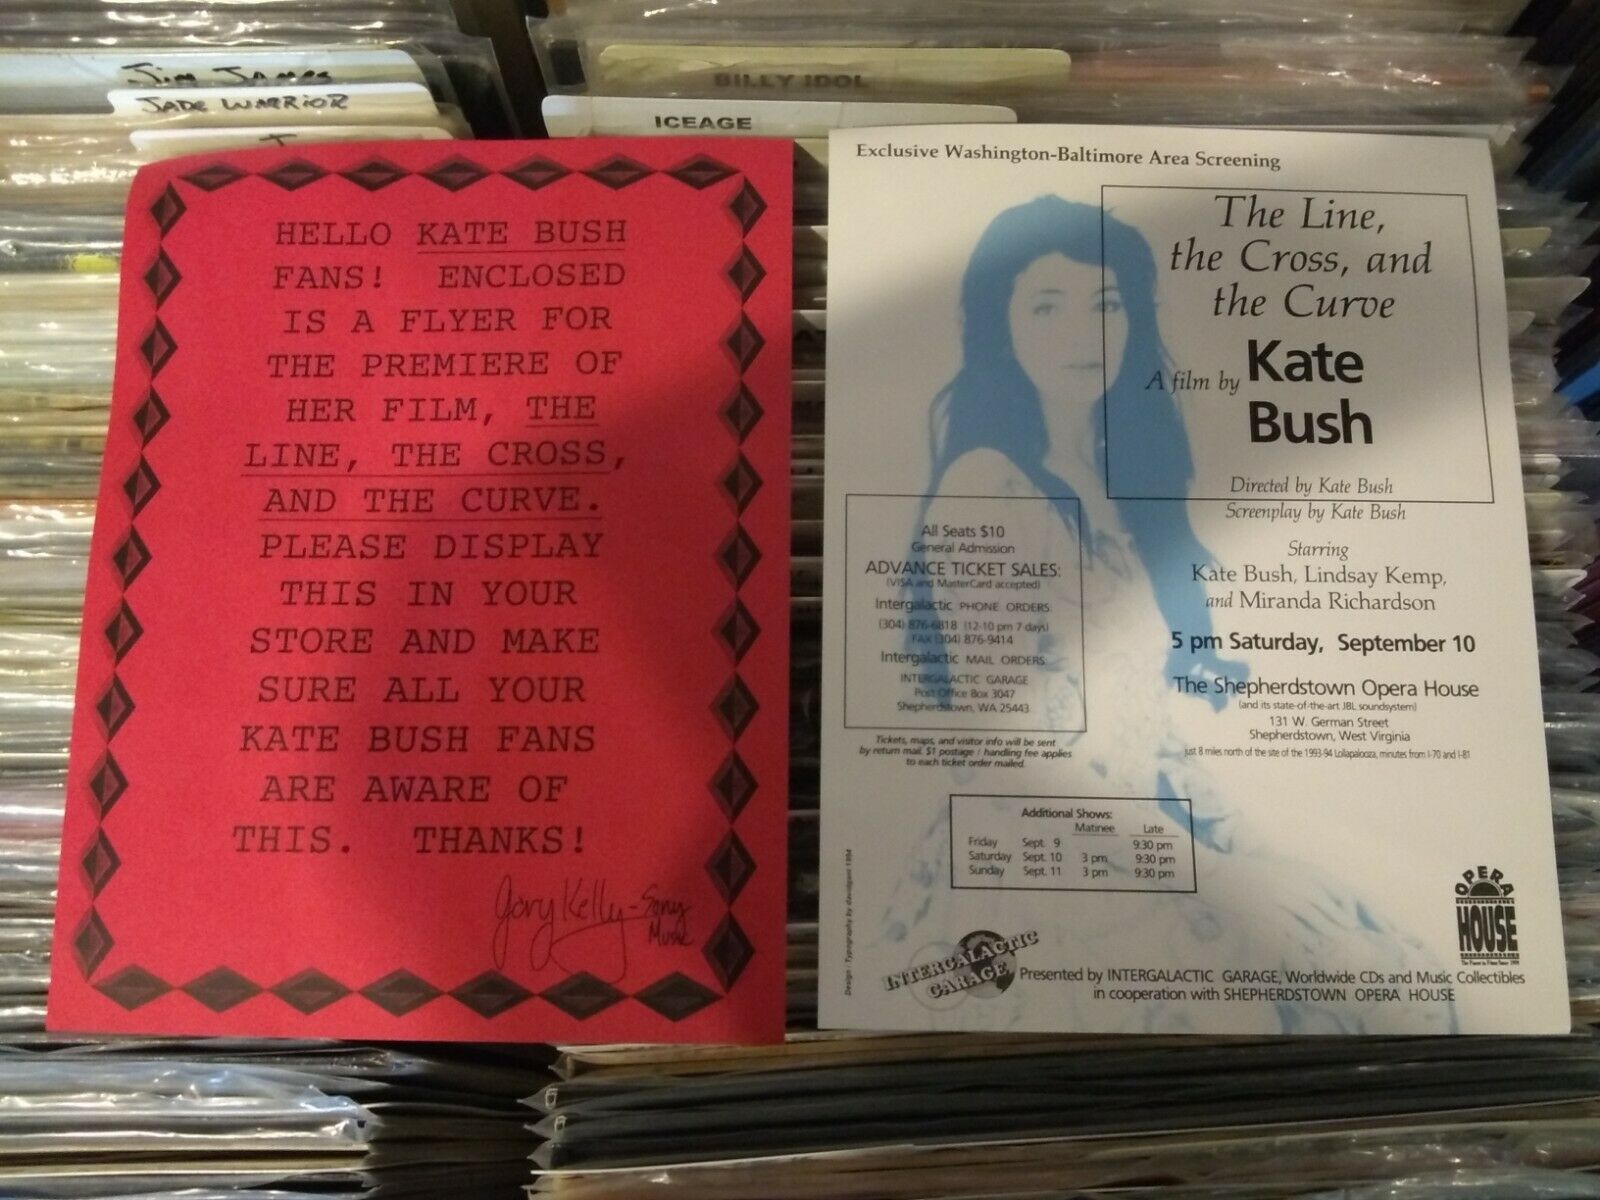 Jim James
JADE WARRIOR
BILLY IDOL
ICEAGE
HELLO KATE BUSH
FANS! ENCLOSED
IS A FLYER FOR
THE PREMIERE OF
HER FILM, THE
LINE, THE CROSS,
AND THE CURVE.
PLEASE DISPLAY
THIS IN YOUR
STORE AND MAKE
SURE ALL YOUR
KATE BUSH FANS
ARE AWARE OF
THIS. THANKS!
Gary Kelly - Sony
Music
Exclusive Washington-Baltimore Area Screening
The Line,
the Cross, and
the Curve
A film by Kate
Bush
Directed by Kate Bush
Screenplay by Kate Bush
Starring
Kate Bush, Lindsay Kemp,
and Miranda Richardson
5 pm Saturday, September 10
The Shepherdstown Opera House
(and its state-of-the-art JBL soundsystem)
131 W. German Street
Shepherdstown, West Virginia
just 8 miles north of the site of the 1993-94 Lollapalooza, minutes from I-70 and I-81
All Seats $10
General Admission
ADVANCE TICKET SALES:
(VISA and MasterCard accepted)
Intergalactic PHONE ORDERS:
(304) 876-6818 (12-10 pm 7 days)
FAX (304) 876-9414
Intergalactic MAIL ORDERS:
INTERGALACTIC GARAGE
Post Office Box 3047
Shepherdstown, WA 25443
Tickets, maps, and visitor info will be sent
by return mail. $1 postage / handling fee applies
to each ticket order mailed.
Additional Shows:
Matinee Late
Friday Sept. 9 9:30 pm
Saturday Sept. 10 3 pm 9:30 pm
Sunday Sept. 11 3 pm 9:30 pm
Design / Typography by davidgami 1994
INTERGALACTIC
GARAGE
OPERA
HOUSE
Presented by INTERGALACTIC GARAGE, Worldwide CDs and Music Collectibles
in cooperation with SHEPHERDSTOWN OPERA HOUSE